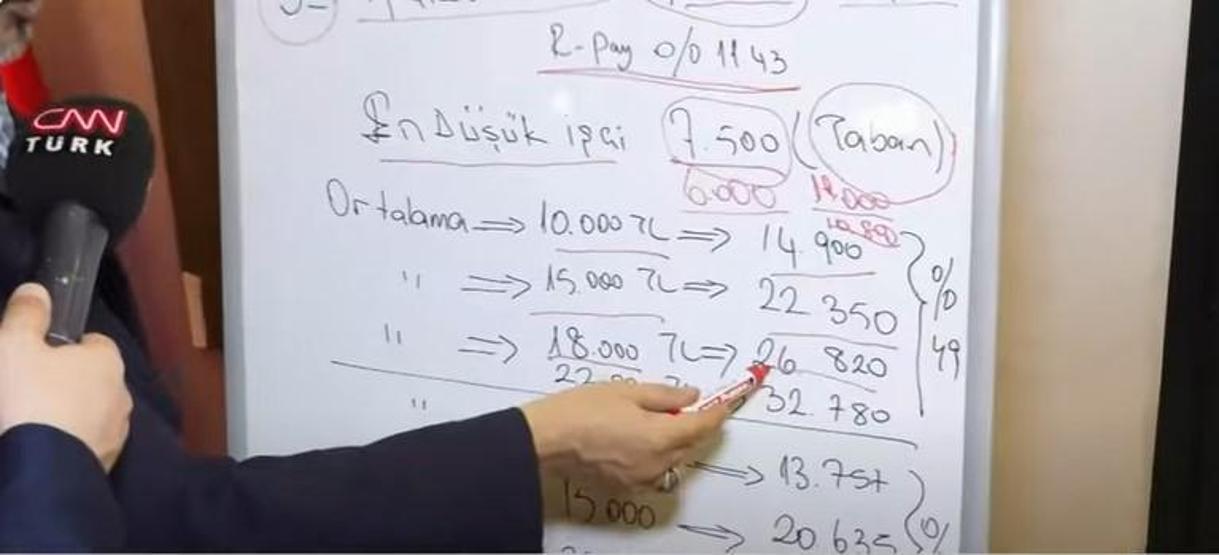 CNN
TÜRK
R-pay 0/0 1143
En Düşük işçi 7.500 (Taban)
6.000 14.000
10.800
Ortalama ⇒ 10.000 TL ⇒ 14.900
" ⇒ 15.000 TL ⇒ 22 350
" ⇒ 18.000 TL ⇒ 26 820
" 32.780
0/0 49
⇒ 13.757
15 000 ⇒ 20 635
0/